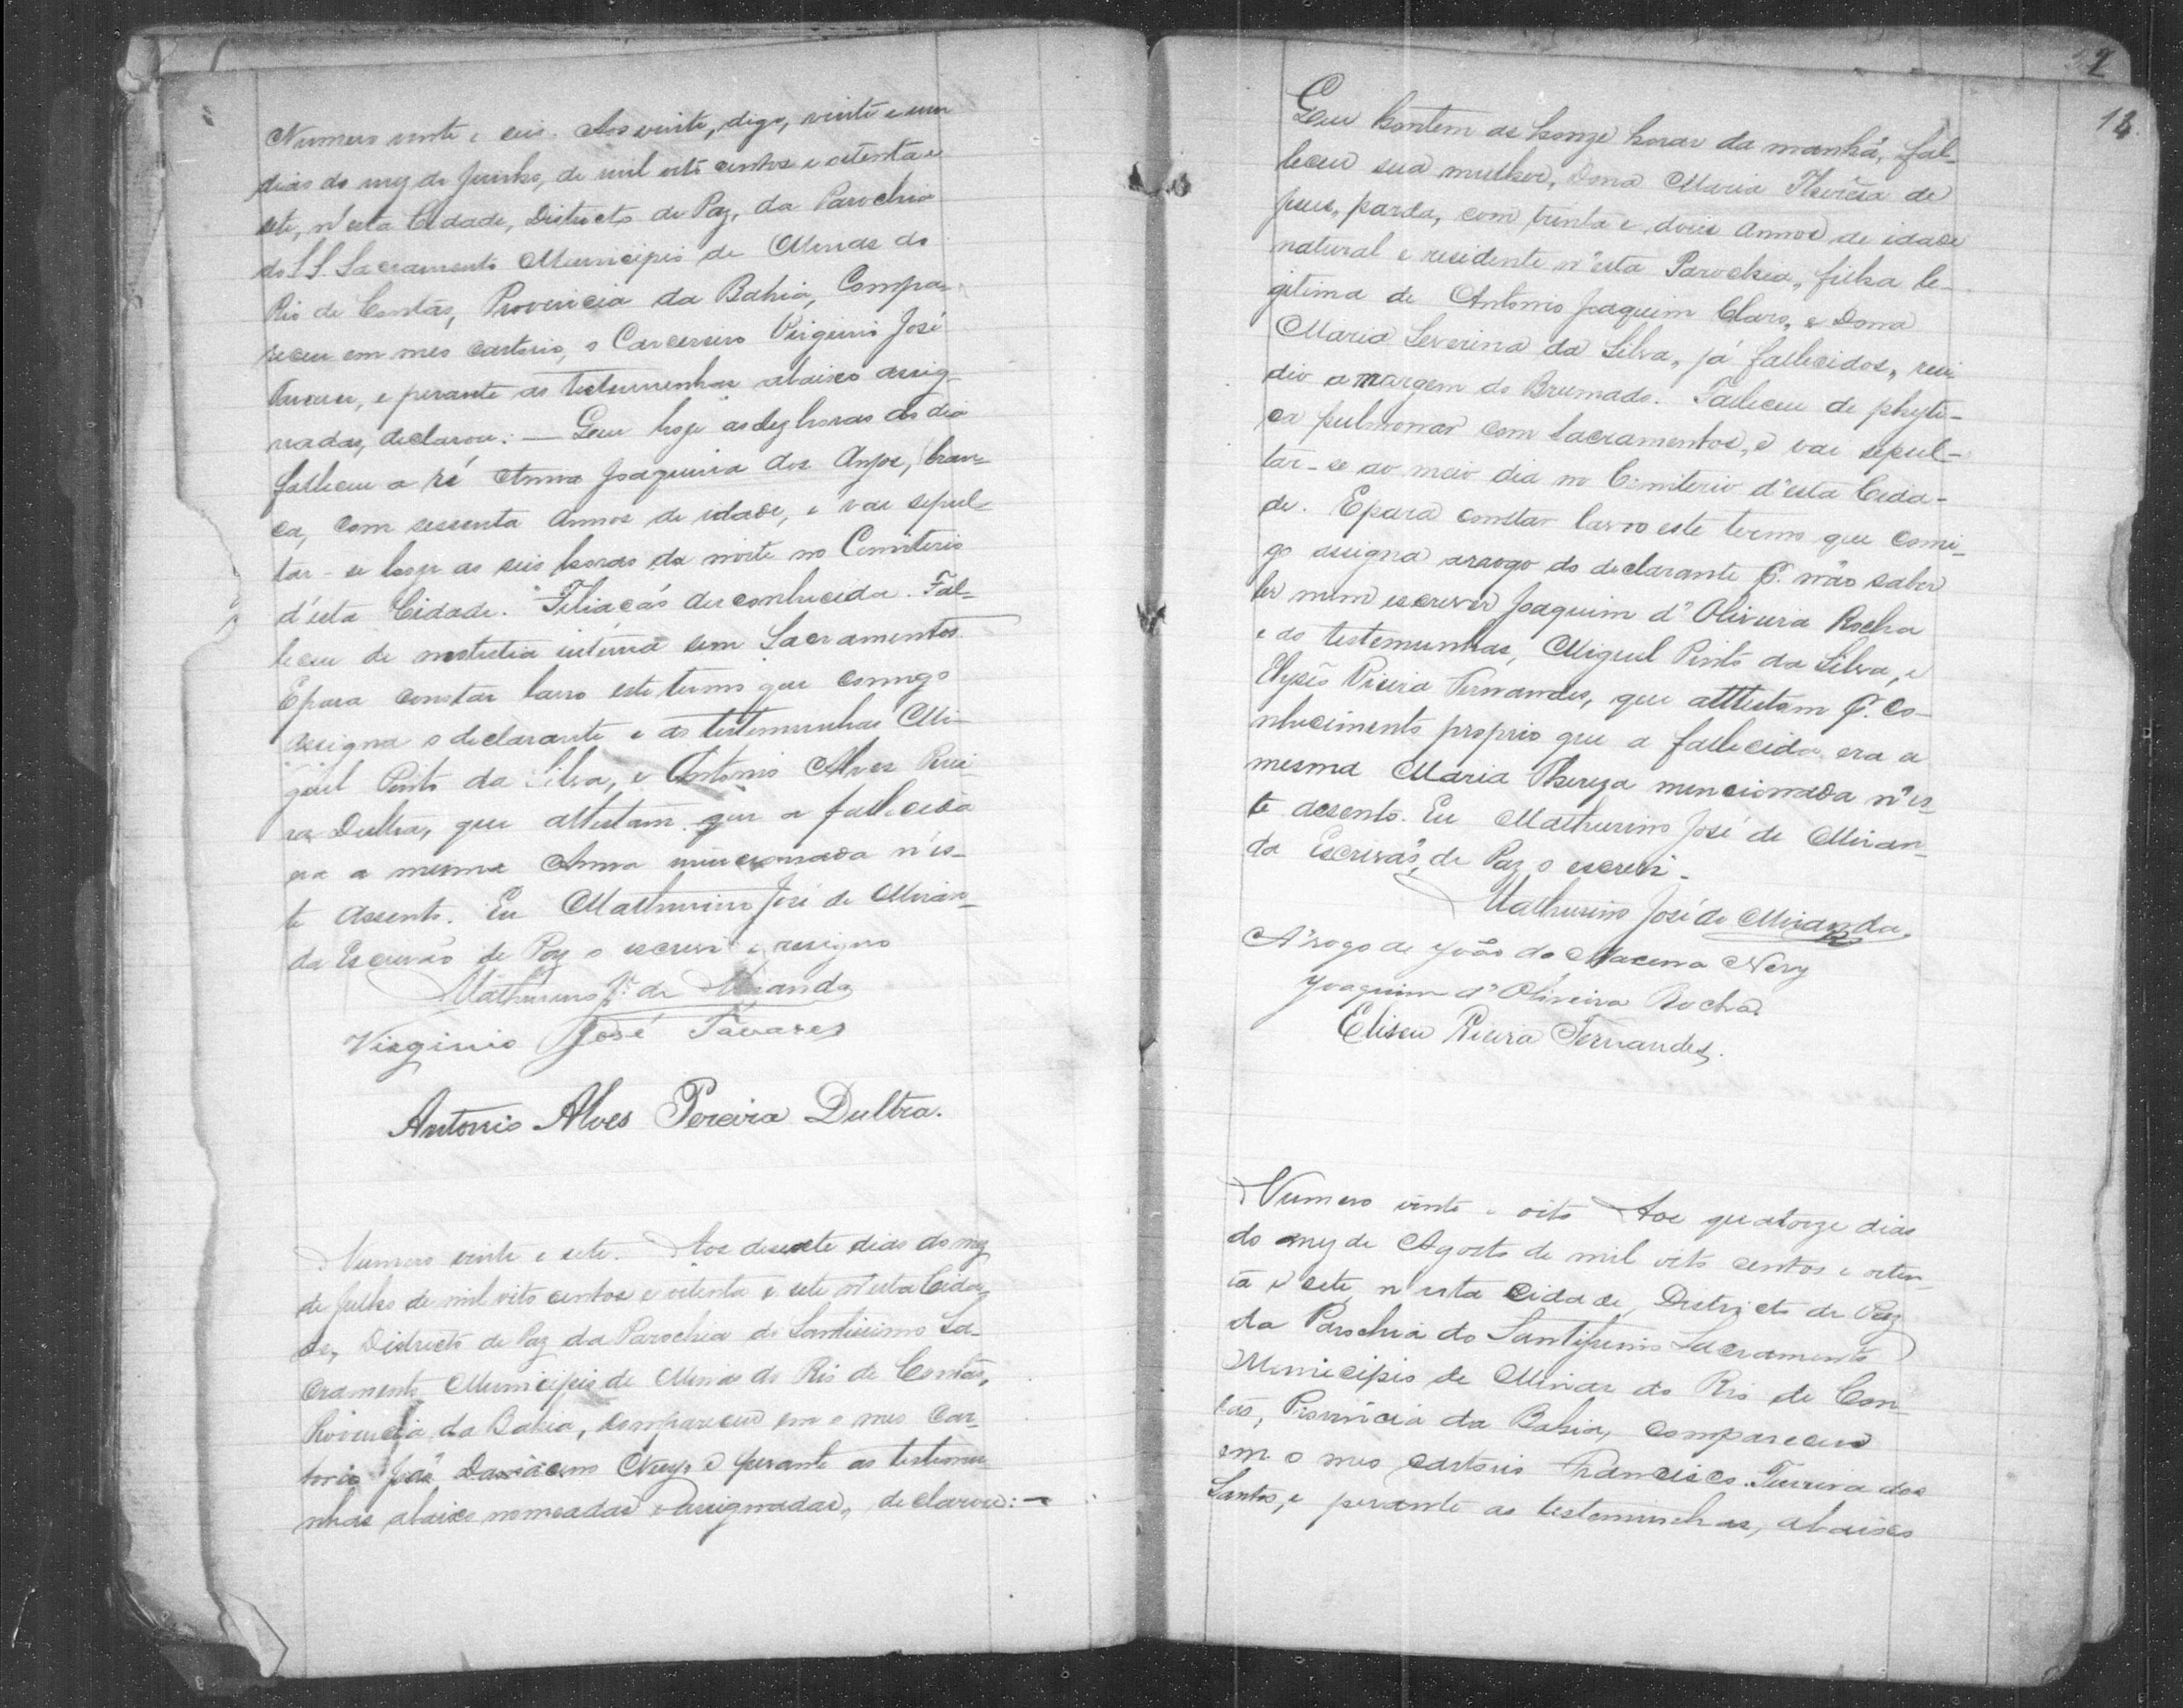 Numero vinte e seis. Aos vinte, digo, vinte e um
dias do mez de Junho, de mil oito centos e oitenta e
sete, n'esta Cidade, Districto de Paz, da Parochia
do S S. Sacramento Municipio de Minas do
Rio de Contas, Provincia da Bahia, Compa-
receu em meo cartorio, o Carcereiro Virginio José
Tavares, e perante as testemunhas abaixo assig-
nadas, declarou: — Que hoje as dez horas do dia
falleceu a ré Anna Joaquina dos Anjos, bran-
ca, com sessenta annos de idade, e vai sepul-
tar-se hoje as seis horas da noite no Cemiterio
d'esta Cidade. Filiação desconhecida. Fal-
leceu de molestia interna sem Sacramentos.
E para constar lavro este termo que comigo
assigna o declarante e as testemunhas Mi-
guel Pinto da Silva, e Antonio Alves Perei-
ra Dultra, que attestam que a fallecida
era a mesma Anna mencionada n'es-
te assento. Eu Mathurino José de Miran-
da Escrivão de Paz o escrevi e assigno
Mathurino J.e de Miranda
Virginio José Tavares
Antonio Alves Pereira Dultra.
Numero vinte e sete. Aos desesete dias do mez
de Julho de mil oito centos e oitenta e sete n'esta Cida-
de, Districto de Paz da Parochia do Santissimo Sa-
cramento Municipio de Minas do Rio de Contas,
Provincia da Bahia, compareceu em o meo Car-
torio João Nery e perante as testemu-
nhas abaixo nomeadas e assignadas, declarou: —
2
13
Que hontem as honze horas da manhã, fal-
leceu sua mulher, Dona Maria Thereza de
Jesus, parda, com trinta e dous annos de idade
natural e residente n'esta Parochia, filha le-
gitima de Antonio Joaquim Claro, e Dona
Maria Severina da Silva, já fallecidos, resi-
dio a margem do Brumado. Falleceu de phyti-
ca pulmonar com Sacramentos, e vai sepul-
tar-se ao meio dia no Cemiterio d'esta Cida-
de. E para constar lavro este termo que comi-
go assigna arrogo do declarante p. não saber
ler nem escrever Joaquim d'Oliveira Rocha
e as testemunhas, Miguel Pinto da Silva, e
Elyseo Vieira Fernandes, que atttestam p. co-
nhecimento proprio que a fallecida era a
mesma Maria Thereza mencionada n'es-
te assento. Eu Mathurino José de Miran-
da Escrivão de Paz o escrevi.
Mathurino José de Miranda
A rogo de João da Macena Nery
Joaquim d'Oliveira Rocha.
Eliseu Vieira Fernandes.
Numero vinte e oito Aos quatorze dias
do mez de Agosto de mil oito centos e oiten-
ta e sete, n'esta Cidade, Districto de Paz
da Parochia do Santissimo Sacramento
Municipio de Minas do Rio de Con-
tas, Provincia da Bahia, compareceu
em o meo cartorio Francisco Ferreira dos
Santos, e perante as testemunhas, abaixo